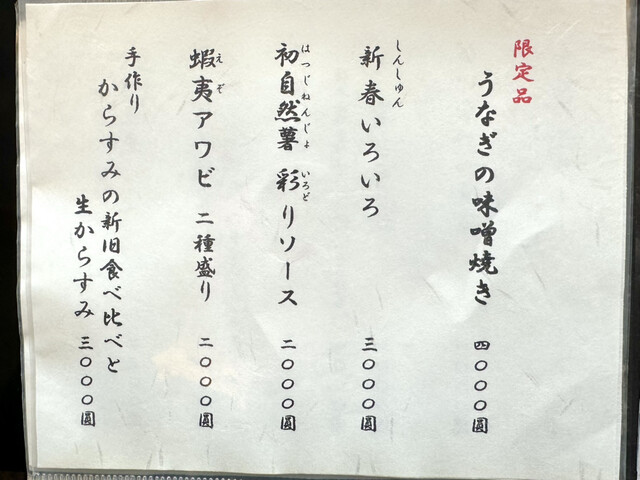 限定品
うなぎの味噌焼き 四〇〇〇圓
しんしゅん
新春いろいろ 三〇〇〇圓
はつじねんじょ いろど
初自然薯 彩りソース 二〇〇〇圓
えぞ
蝦夷アワビ 二種盛り 二〇〇〇圓
手作り
からすみの新旧食べ比べと
生からすみ 三〇〇〇圓